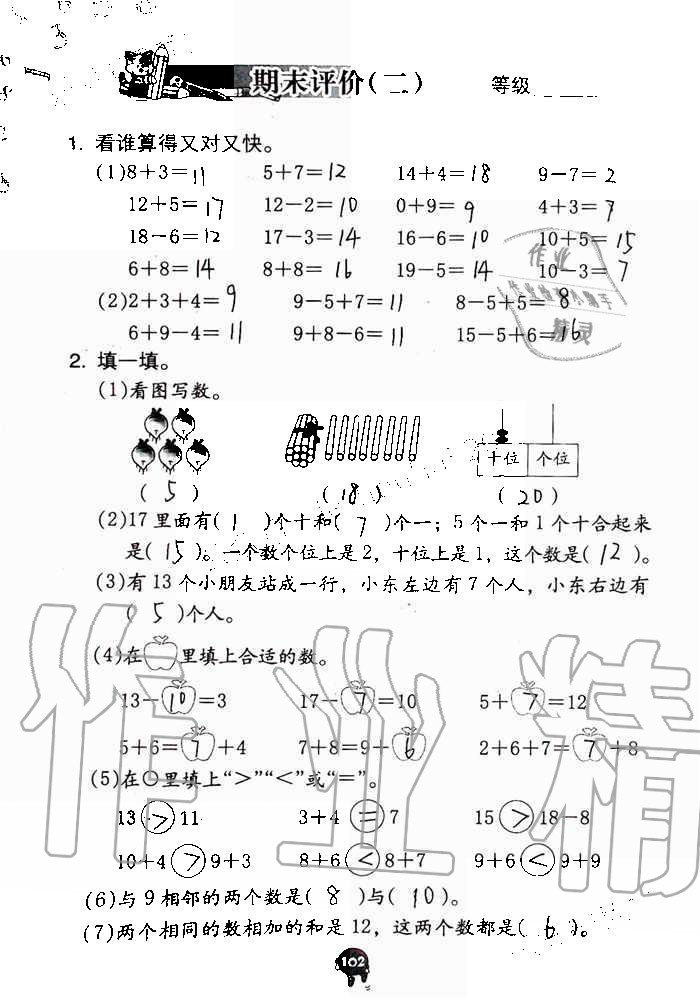 期末评价(二) 等级
1. 看谁算得又对又快。
(1)8+3=11 5+7=12 14+4=18 9-7=2
12+5=17 12-2=10 0+9=9 4+3=7
18-6=12 17-3=14 16-6=10 10+5=15
6+8=14 8+8=16 19-5=14 10-3=7
(2)2+3+4=9 9-5+7=11 8-5+5=8
6+9-4=11 9+8-6=11 15-5+6=16
2. 填一填。
(1)看图写数。
十位 个位
(5) (18) (20)
(2)17里面有(1)个十和(7)个一;5个一和1个十合起来
是(15)。一个数个位上是2,十位上是1,这个数是(12)。
(3)有13个小朋友站成一行,小东左边有7个人,小东右边有
(5)个人。
(4)在 里填上合适的数。
13-10=3 17-7=10 5+7=12
5+6=7+4 7+8=9+6 2+6+7=7+8
(5)在○里填上“>”“<”或“=”。
13>11 3+4=7 15>18-8
10+4>9+3 8+6<8+7 9+6<9+9
(6)与9相邻的两个数是(8)与(10)。
(7)两个相同的数相加的和是12,这两个数都是(6)。
102
作业精
作业
精灵